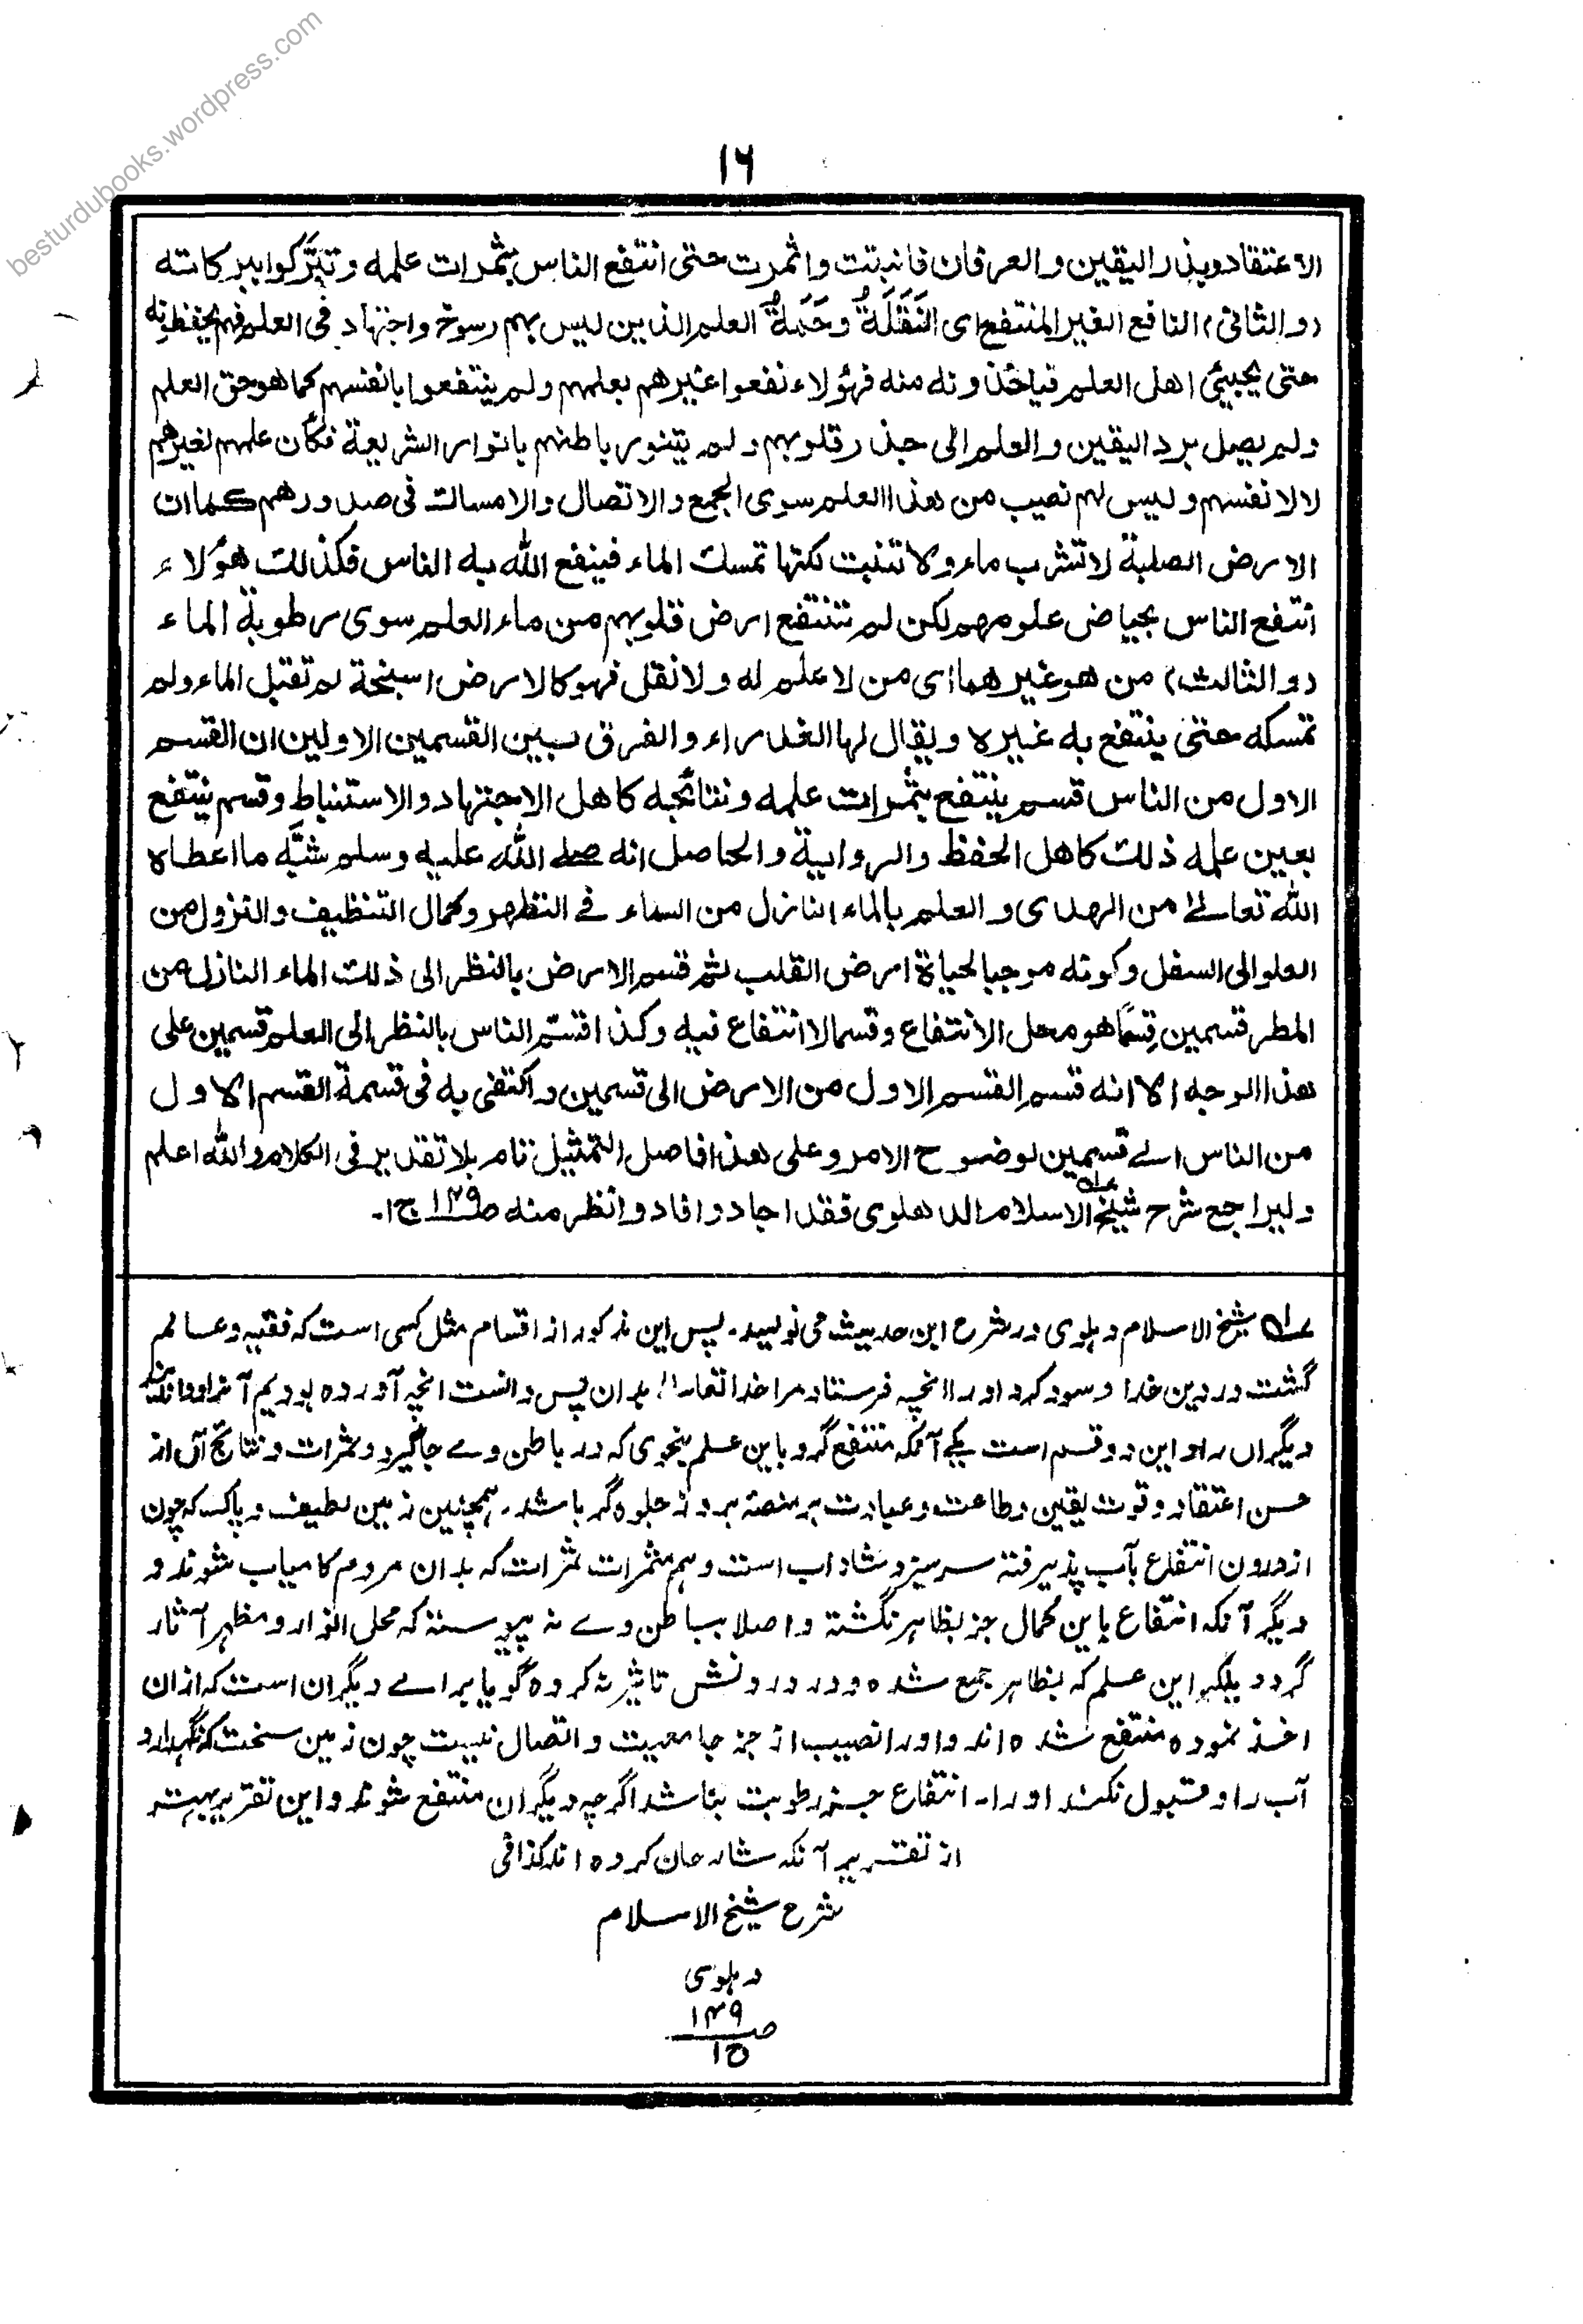 besturdubooks.wordpress.com
١٦
الاعتقاد وبذر اليقين والعرفان فانبتت واثمرت حتى انتفع الناس بثمرات علمه وتبرَّكوا ببركاته
(والثانى) النافع الغير المنتفع اى النَقَلَةُ وحَمَلَةُ العلم الذين ليس لهم رسوخ واجتهاد فى العلم فهم يحفظونه
حتى يجيئ اهل العلم فياخذونه منه فهؤلاء نفعوا غيرهم بعلمهم ولم ينتفعوا بانفسهم كما هو حق العلم
ولم يصل برد اليقين والعلم الى جذر قلوبهم ولم يتنور باطنهم بانوار الشريعة فكأن علمهم لغيرهم
لا لانفسهم وليس لهم نصيب من هذا العلم سوى الجمع والاتصال والامساك فى صدورهم كما ان
الارض الصلبة لا تشرب ماء ولا تنبت لكنها تمسك الماء فينفع الله به الناس فكذلك هؤلاء
انتفع الناس بحياض علومهم لكن لم تنتفع ارض قلوبهم من ماء العلم سوى رطوبة الماء
(والثالث) من هو غيرهما اى من لا علم له ولا نقل فهو كالارض اسبخة لم تقبل الماء ولم
تمسكه حتى ينتفع به غيره ويقال لها الغدراء والفرق بين القسمين الاولين ان القسم
الاول من الناس قسم ينتفع بثمرات علمه ونتائجه كاهل الاجتهاد والاستنباط وقسم ينتفع
بعين علمه ذلك كاهل الحفظ والرواية والحاصل انه صلے الله عليه وسلم شبَّه ما اعطاه
الله تعالىٰ من الهدى والعلم بالماء النازل من السماء فے التطهر وكمال التنظيف والنزول من
العلو الى السفل وكونه موجبا لحياة ارض القلب ثم قسم الارض بالنظر الى ذلك الماء النازل من
المطر قسمين قِسمًا هو محل الانتفاع وقسما لا انتفاع فيه وكذا قسّم الناس بالنظر الى العلم قسمين على
هذا الوجه الا انه قسم القسم الاول من الارض الى قسمين واكتفى به فى قسمة القسم الاول
من الناس الے قسمين لوضوح الامر وعلى هذا فاصل التمثيل تام بلا تقدير فى الكلام والله اعلم
وليراجع شرح شيخ الاسلام الدهلوى فقد اجاد وافاد وانظر منه ص١٤٩ ج١۔
عــه شیخ الاسلام دہلوی در شرح این حدیث می نویسد۔ پس این مذکور از اقسام مثل کسی است کہ فقیہ و عالم
گشت در دین خدا و سود کرد او را انچہ فرستاد مرا خدا تعالٰی بدان پس دانست انچہ آورده بودیم آنرا و دانانید
دیگراں را و این دو قسم است یکے آنکہ منتفع گردد باین علم بنحوی کہ در باطن وے جا گیرد و ثمرات و نتائج آں از
حسن اعتقاد و قوت یقین و طاعت و عبادت بر منصۂ بروز جلوه گر باشد۔ ہمچنین زمین لطیف و پاک کہ چون
از درون انتفاع بآب پذیرفتہ سرسبز و شاداب است و ہم مثمرات ثمرات کہ بدان مردم کامیاب شوند و
دیگر آنکہ انتفاع باین کمال جز بظاہر نگشتہ و اصلا بباطن وے نہ پیوستہ کہ محل انوار و مظہر آثار
گردد بلکہ این علم کہ بظاہر جمع شده و در درونش تاثیر نہ کرده گویا براے دیگران است کہ ازان
اخذ نموده منتفع شده اند و او را نصیب از جز جامعیت و اتصال نیست چون زمین سخت کہ نگہدارد
آب را و قبول نکند او را۔ انتفاع جز رطوبت نباشد اگرچہ دیگران منتفع شوند و این تقریر بہتر
از تقریر آنکہ شارحان کرده اند کذا فی
شرح شیخ الاسلام
دہلوی
ص١٤٩
ج١